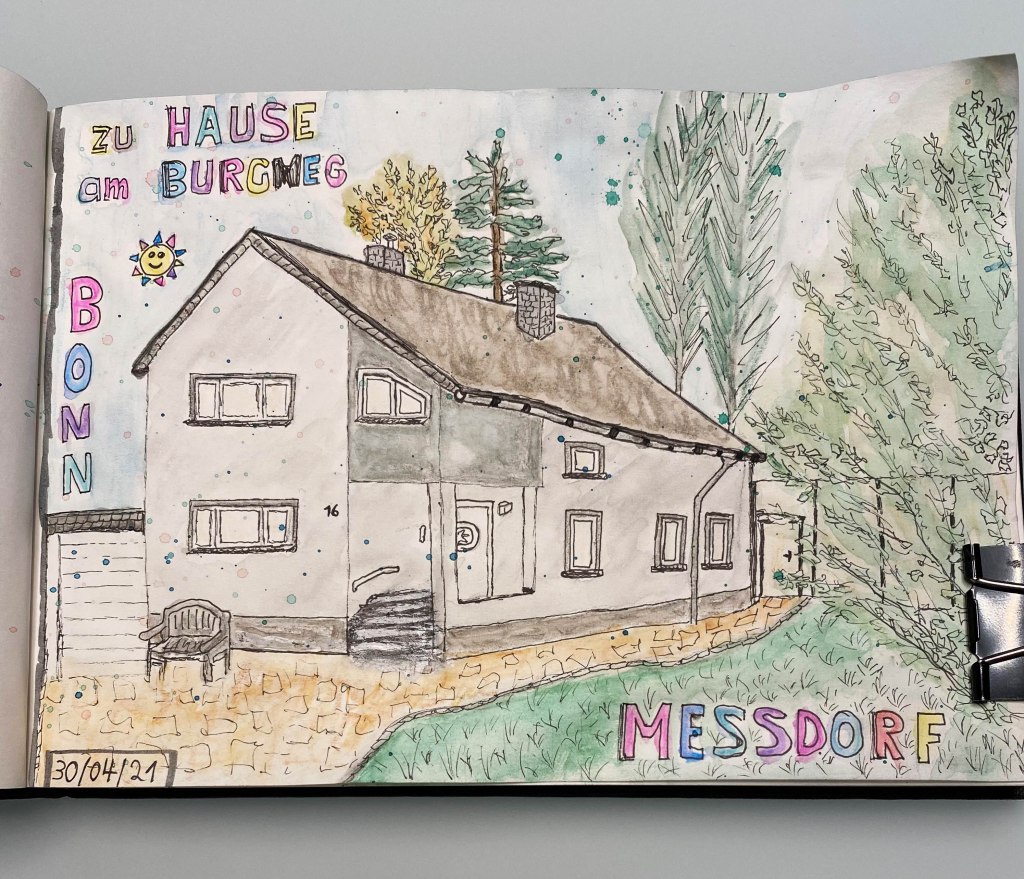 ZU HAUSE
am BURGWEG
BONN
16
MESSDORF
30/04/21